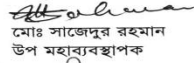 মোঃ সাজেদুর রহমান
উপ মহাব্যবস্থাপক